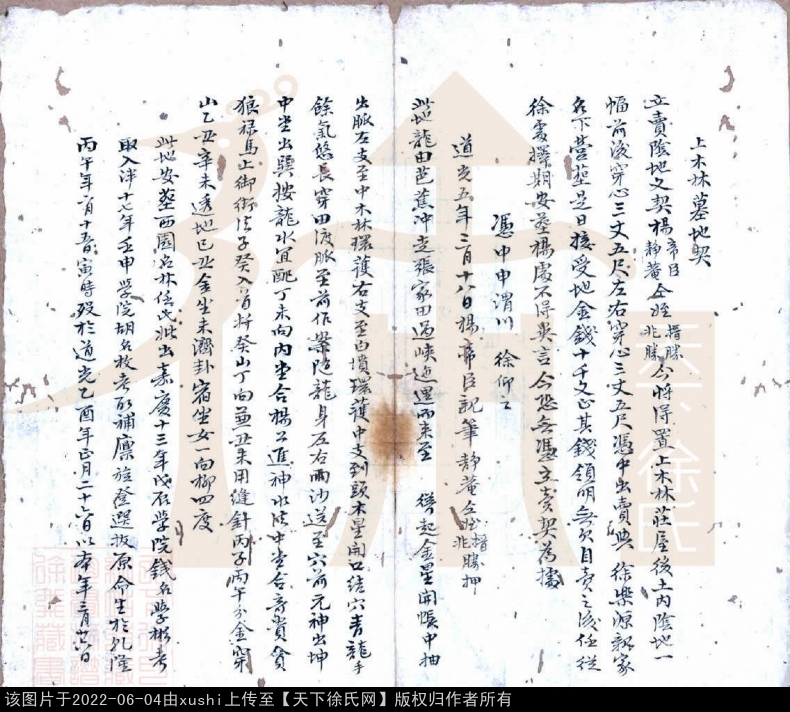 上木林墓地契
立賣陰地文契楊帝臣靜菴仝姪搢勝兆勝今將得置上木林莊屋後土內陰地一
幅前後穿心三丈五尺左右穿心三丈五尺憑中出賣與徐樂源親家
名下營塟是日接受地金錢十千文正其錢領明無欠自賣之後任從
徐處擇期安塟楊處不得異言今恐無憑立賣契為據
憑中申渭川 徐仰之
道光五年三月十八日楊帝臣親筆靜菴仝姪搢兆勝押
此地龍由芭蕉沖走張家田過峽迤邐而來至 後起金星開帳中抽
出脈左支至中木林環護右支至白墳環護中支到頭木星開口結穴青龍手
餘氣悠長穿田渡脈至前作案隨龍身左右兩沙送至穴前元神出坤
中堂出巽按龍水宜配丁未向內堂合楊公進神水法中堂合音貴貪
狼祿馬上御街法子癸入首將癸山丁向兼丑未用縫針丙子丙午分金穿
山乙丑辛未透地己丑金坐未濟卦宿坐女一向柳四度
此地安塟西園名林任氏妣出嘉慶十三年戊辰學院錢名學彬考
取入泮十七年壬申學院胡名枚考取補廩旌登選拔原命生於乾隆
丙午年 月十五 寅時歿於道光乙酉年正月二十六日以本年三月 日
天下徐氏
该图片于2022-06-04由xushi上传至【天下徐氏网】版权归作者所有